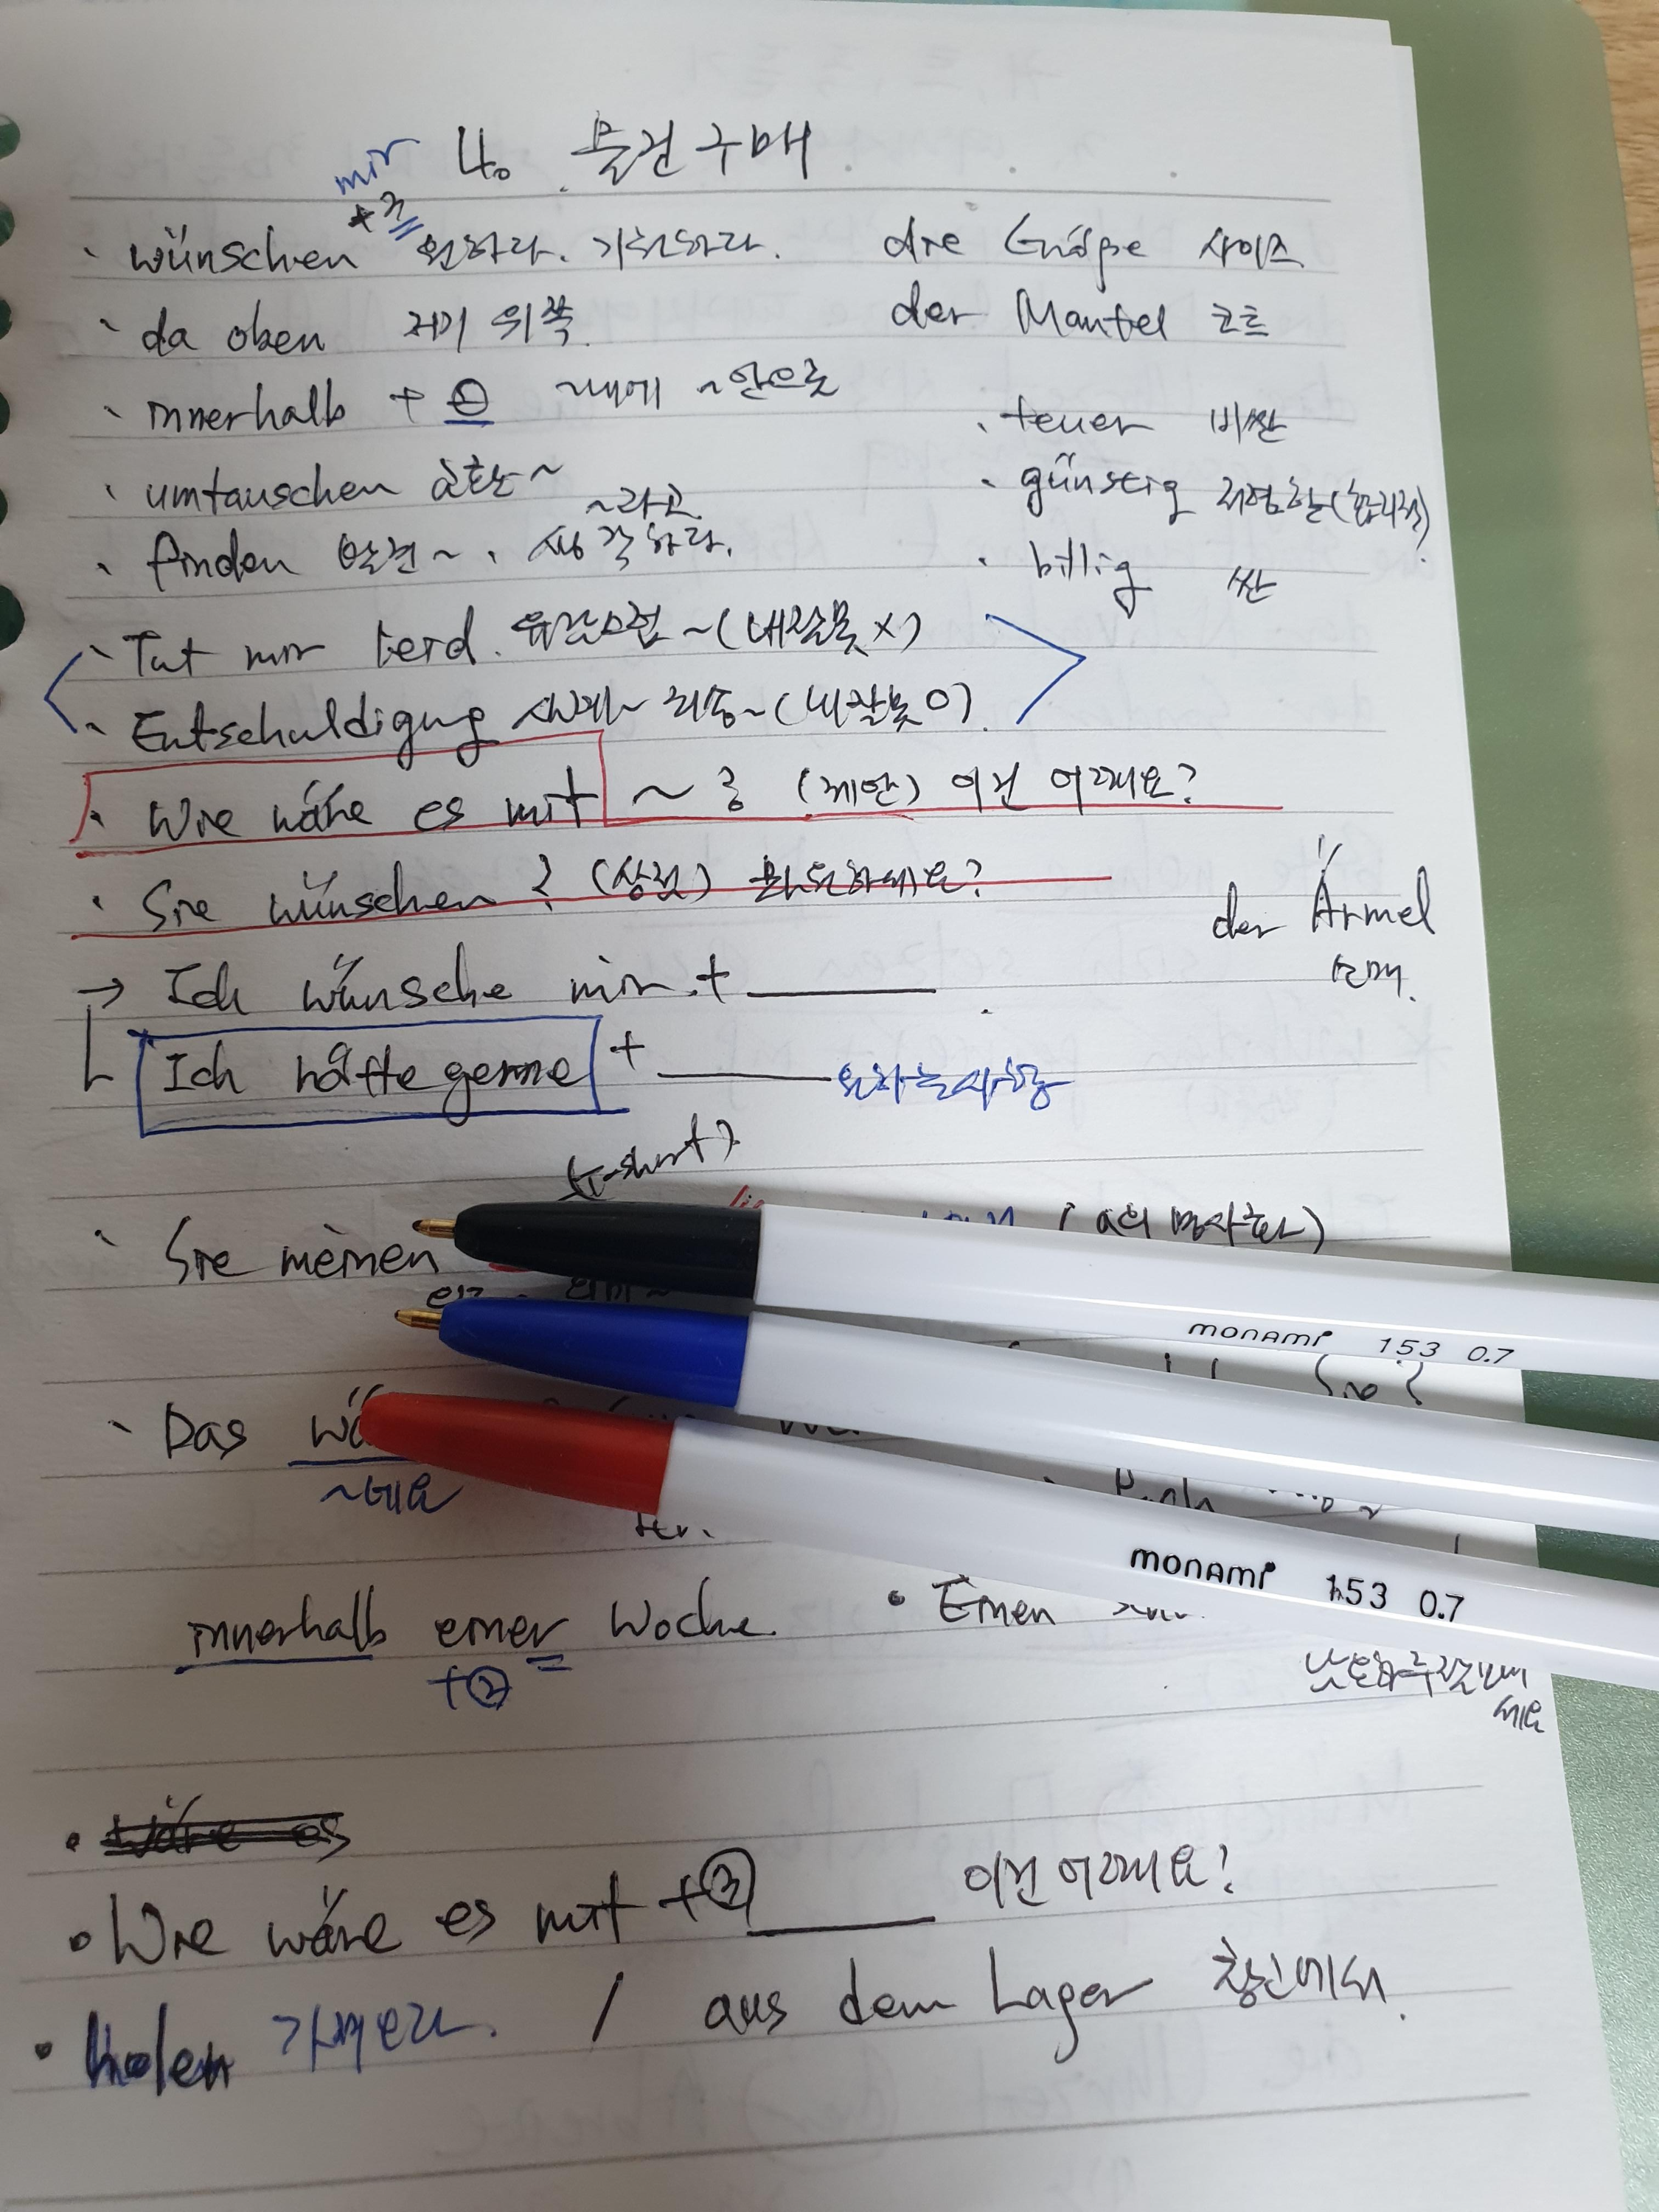 4. 물건구매
mir
+3
wünschen 원하다. 기원하다.
die Größe 사이즈
da oben 저기 위쪽
der Mantel 코트
innerhalb + ② ~내에 ~안으로
teuer 비싼
umtauschen 교환~
günstig 저렴한(합리적)
~라고
finden 발견~, 생각하다.
billig 싼
Tut mir leid. 유감스럽~(내잘못X)
Entschuldigung 실례~ 죄송~(내잘못O)
Wie wäre es mit ~ 3 (제안) 이건 어때요?
Sie wünschen? (상점) 뭐 원하세요?
der Ärmel
소매.
→ Ich wünsche mir +
Ich hätte gerne +
원하는사항
(T-shirt)
Sie meinen
(a의 명사화)
monami 153 0.7
Sie?
Das
~네요
ten.
monami 153 0.7
innerhalb einer Woche.
+②
Einen
wäre es
Wie wäre es mit +③ 이건 어때요?
holen 가져오다. / aus dem Lager 창고에서.